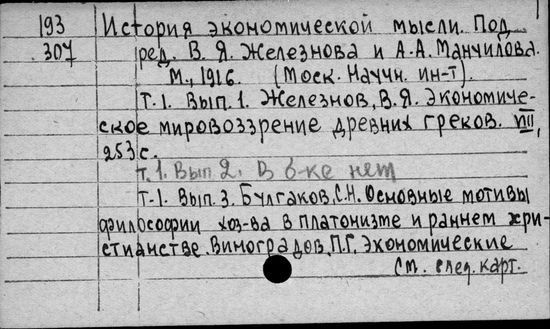 193 История экономической мысли. Под
307 ред. В. Я. Железнова и А. А. Мануилова.
М., 1916. (Моск. Научн. ин-т).
Т. 1. Вып. 1. Железнов, В. Я. Экономиче-
ское мировоззрение древних греков. VIII,
253 с.
Т. 1. Вып 2. В б-ке нет
Т-1. Вып. 3. Булгаков, С.Н. Основные мотивы
философии хоз-ва в платонизме и раннем хри-
стианстве. Виноградов, П.Г. Экономические
См. след. карт.